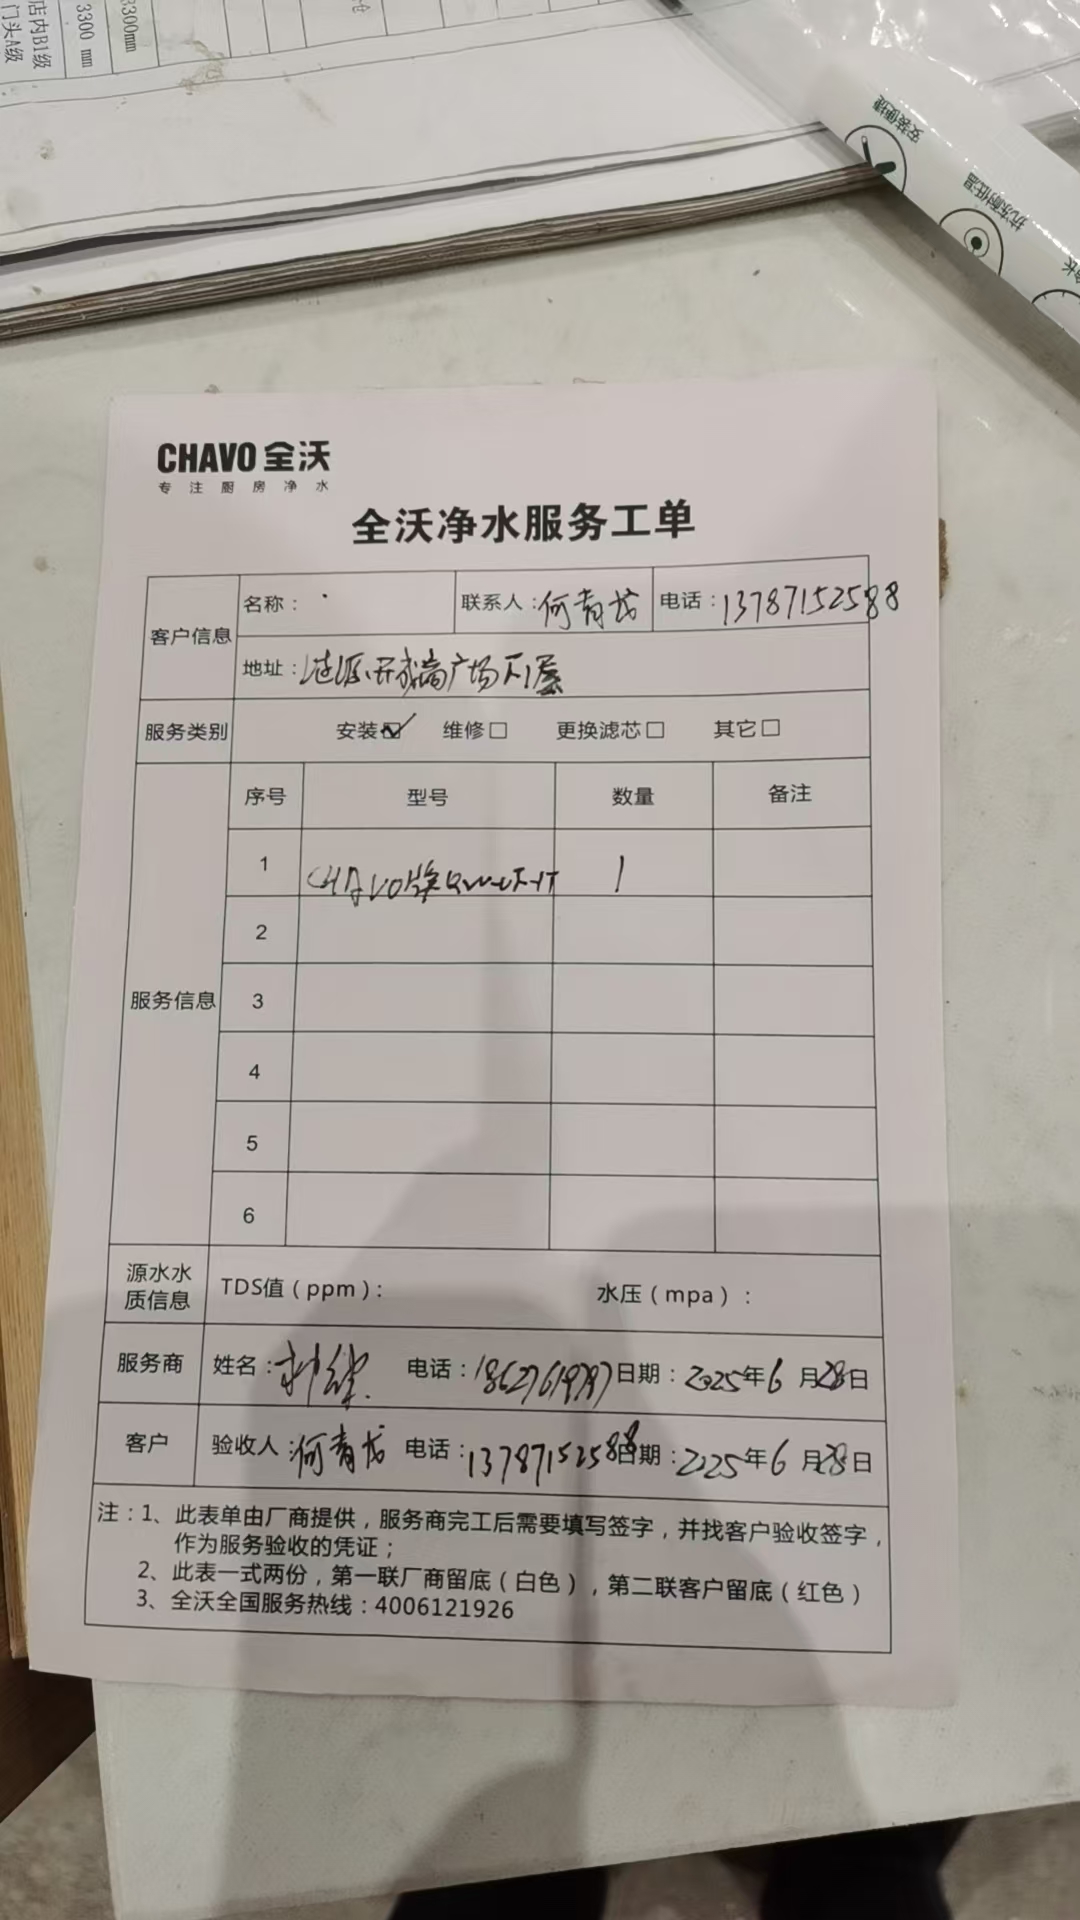 店内B1级
门头A级
3300 mm
3300mm
安装便捷
抗冻耐低温
CHAVO 全沃
专注厨房净水
全沃净水服务工单
客户信息 名称： 联系人：何青龙 电话：13787152588
地址：广场
服务类别 安装☑ 维修□ 更换滤芯□ 其它□
服务信息 序号 型号 数量 备注
1 CHAVO 1
2
3
4
5
6
源水水质信息 TDS值（ppm）： 水压（mpa）：
服务商 姓名： 电话：18627619797 日期：2025年6月28日
客户 验收人：何青龙 电话：13787152588 日期：2025年6月28日
注：1、此表单由厂商提供，服务商完工后需要填写签字，并找客户验收签字，
作为服务验收的凭证；
2、此表一式两份，第一联厂商留底（白色），第二联客户留底（红色）
3、全沃全国服务热线：4006121926